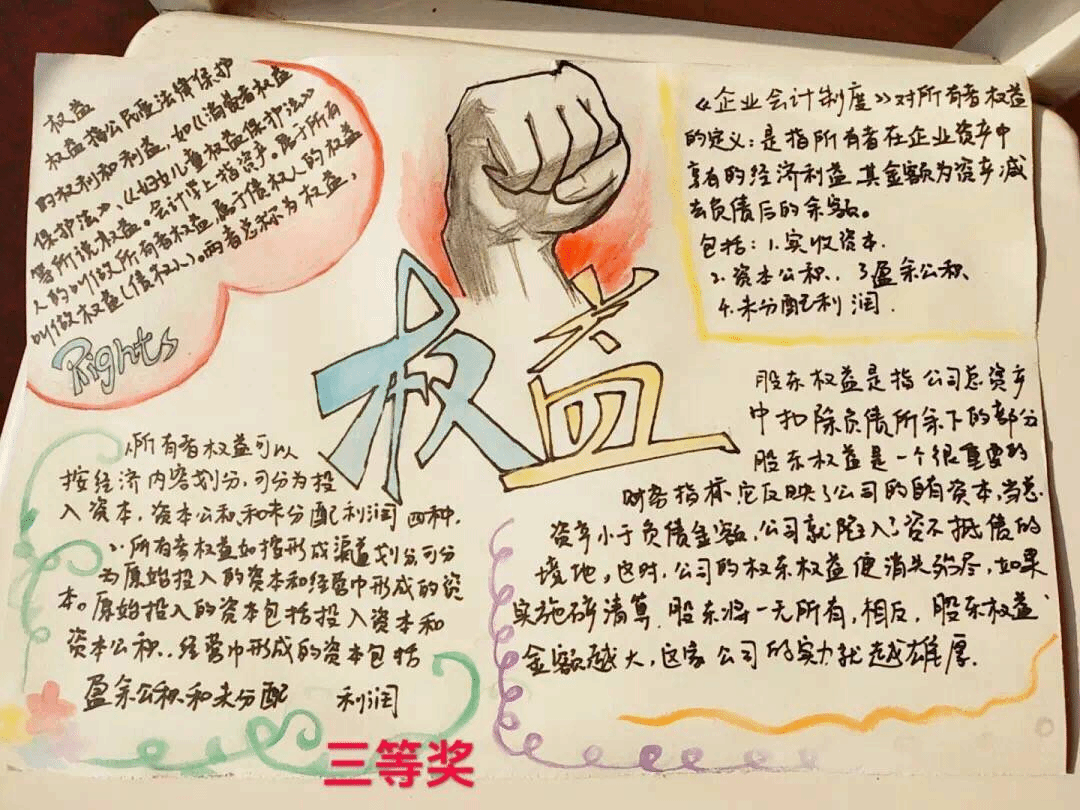 权益
权益指公民受法律保护
的权利和利益，如《消费者权益
保护法》、《妇女儿童权益保护法》
等所说权益。会计学上指资产。属于所有
人的叫做所有者权益，属于债权人的权益
叫做权益（债权人）。两者总称为权益，
Rights
权益
《企业会计制度》对所有者权益
的定义：是指所有者在企业资产中
享有的经济利益其金额为资产减
去负债后的余额。
包括：1.实收资本.
2.资本公积、3盈余公积
4.未分配利润.
1.所有者权益可以
按经济内容划分，可分为投
入资本，资本公积和未分配利润四种.
2.所有者权益如按形成渠道划分可分
为原始投入的资本和经营中形成的资
本。原始投入的资本包括投入资本和
资本公积.经营中形成的资本包括
盈余公积和未分配 利润
股东权益是指公司总资产
中扣除负债所余下的部分
股东权益是一个很重要的
财务指标，它反映了公司的自有资本，当总
资产小于负债金额，公司就陷入了资不抵债的
境地，这时，公司的权东权益便消失殆尽，如果
实施破清算，股东将一无所有，相反，股东权益
金额越大，这家公司的实力就越雄厚.
三等奖